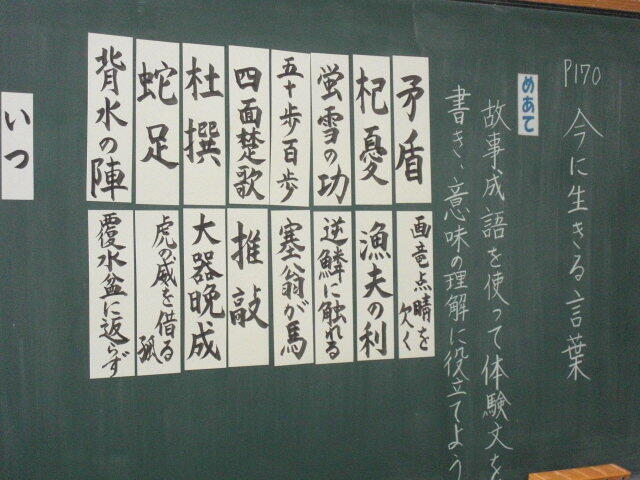 P170
今に生きる言葉
めあて
故事成語を使って体験文を
書き、意味の理解に役立てよう
矛盾
杞憂
蛍雪の功
五十歩百歩
四面楚歌
杜撰
蛇足
背水の陣
画竜点睛を欠く
漁夫の利
逆鱗に触れる
塞翁が馬
推敲
大器晩成
虎の威を借る狐
覆水盆に返らず
いつ